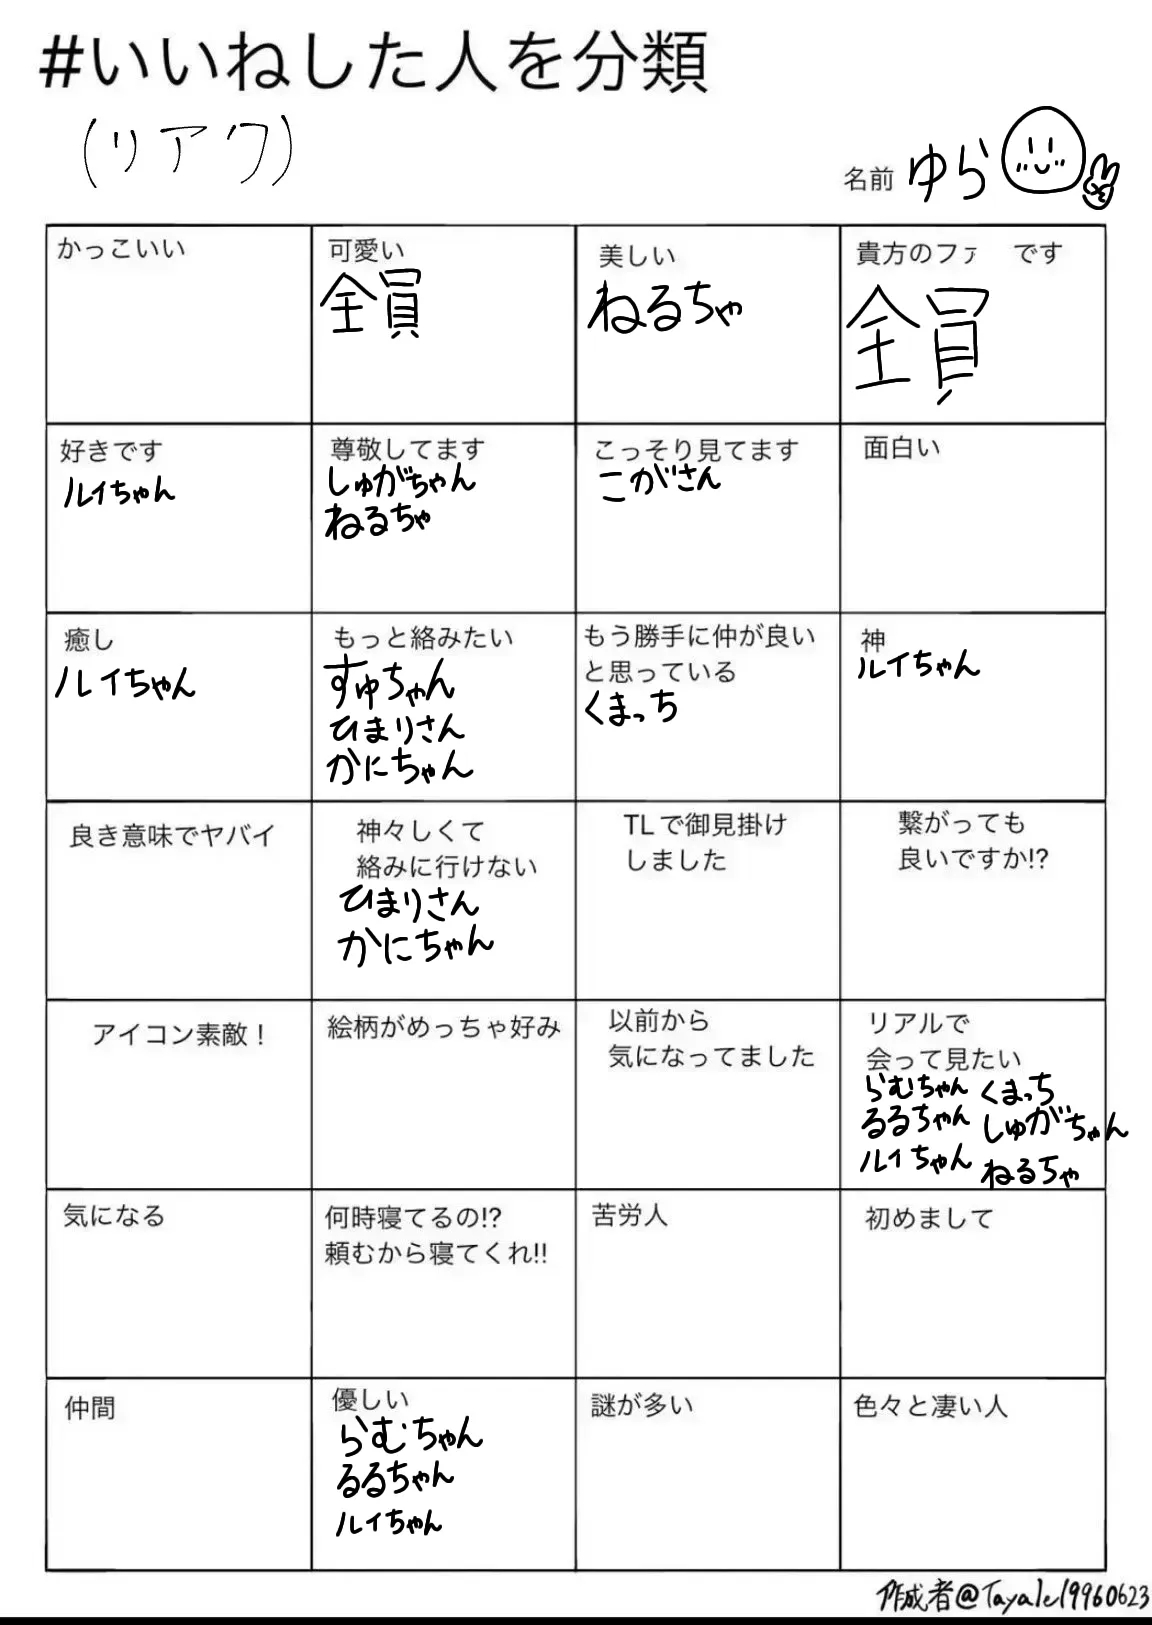 #いいねした人を分類
(リアク)
名前 ゆら
かっこいい
可愛い
全員
美しい
ねるちゃ
貴方のファ です
全員
好きです
ルイちゃん
尊敬してます
しゅがちゃん
ねるちゃ
こっそり見てます
こがさん
面白い
癒し
ルイちゃん
もっと絡みたい
すゅちゃん
ひまりさん
かにちゃん
もう勝手に仲が良い
と思っている
くまっち
神
ルイちゃん
良き意味でヤバイ
神々しくて
絡みに行けない
ひまりさん
かにちゃん
TLで御見掛け
しました
繋がっても
良いですか!?
アイコン素敵！
絵柄がめっちゃ好み
以前から
気になってました
リアルで
会って見たい
らむちゃん くまっち
るるちゃん しゅがちゃん
ルイちゃん ねるちゃ
気になる
何時寝てるの!?
頼むから寝てくれ!!
苦労人
初めまして
仲間
優しい
らむちゃん
るるちゃん
ルイちゃん
謎が多い
色々と凄い人
作成者@Tayale19960623